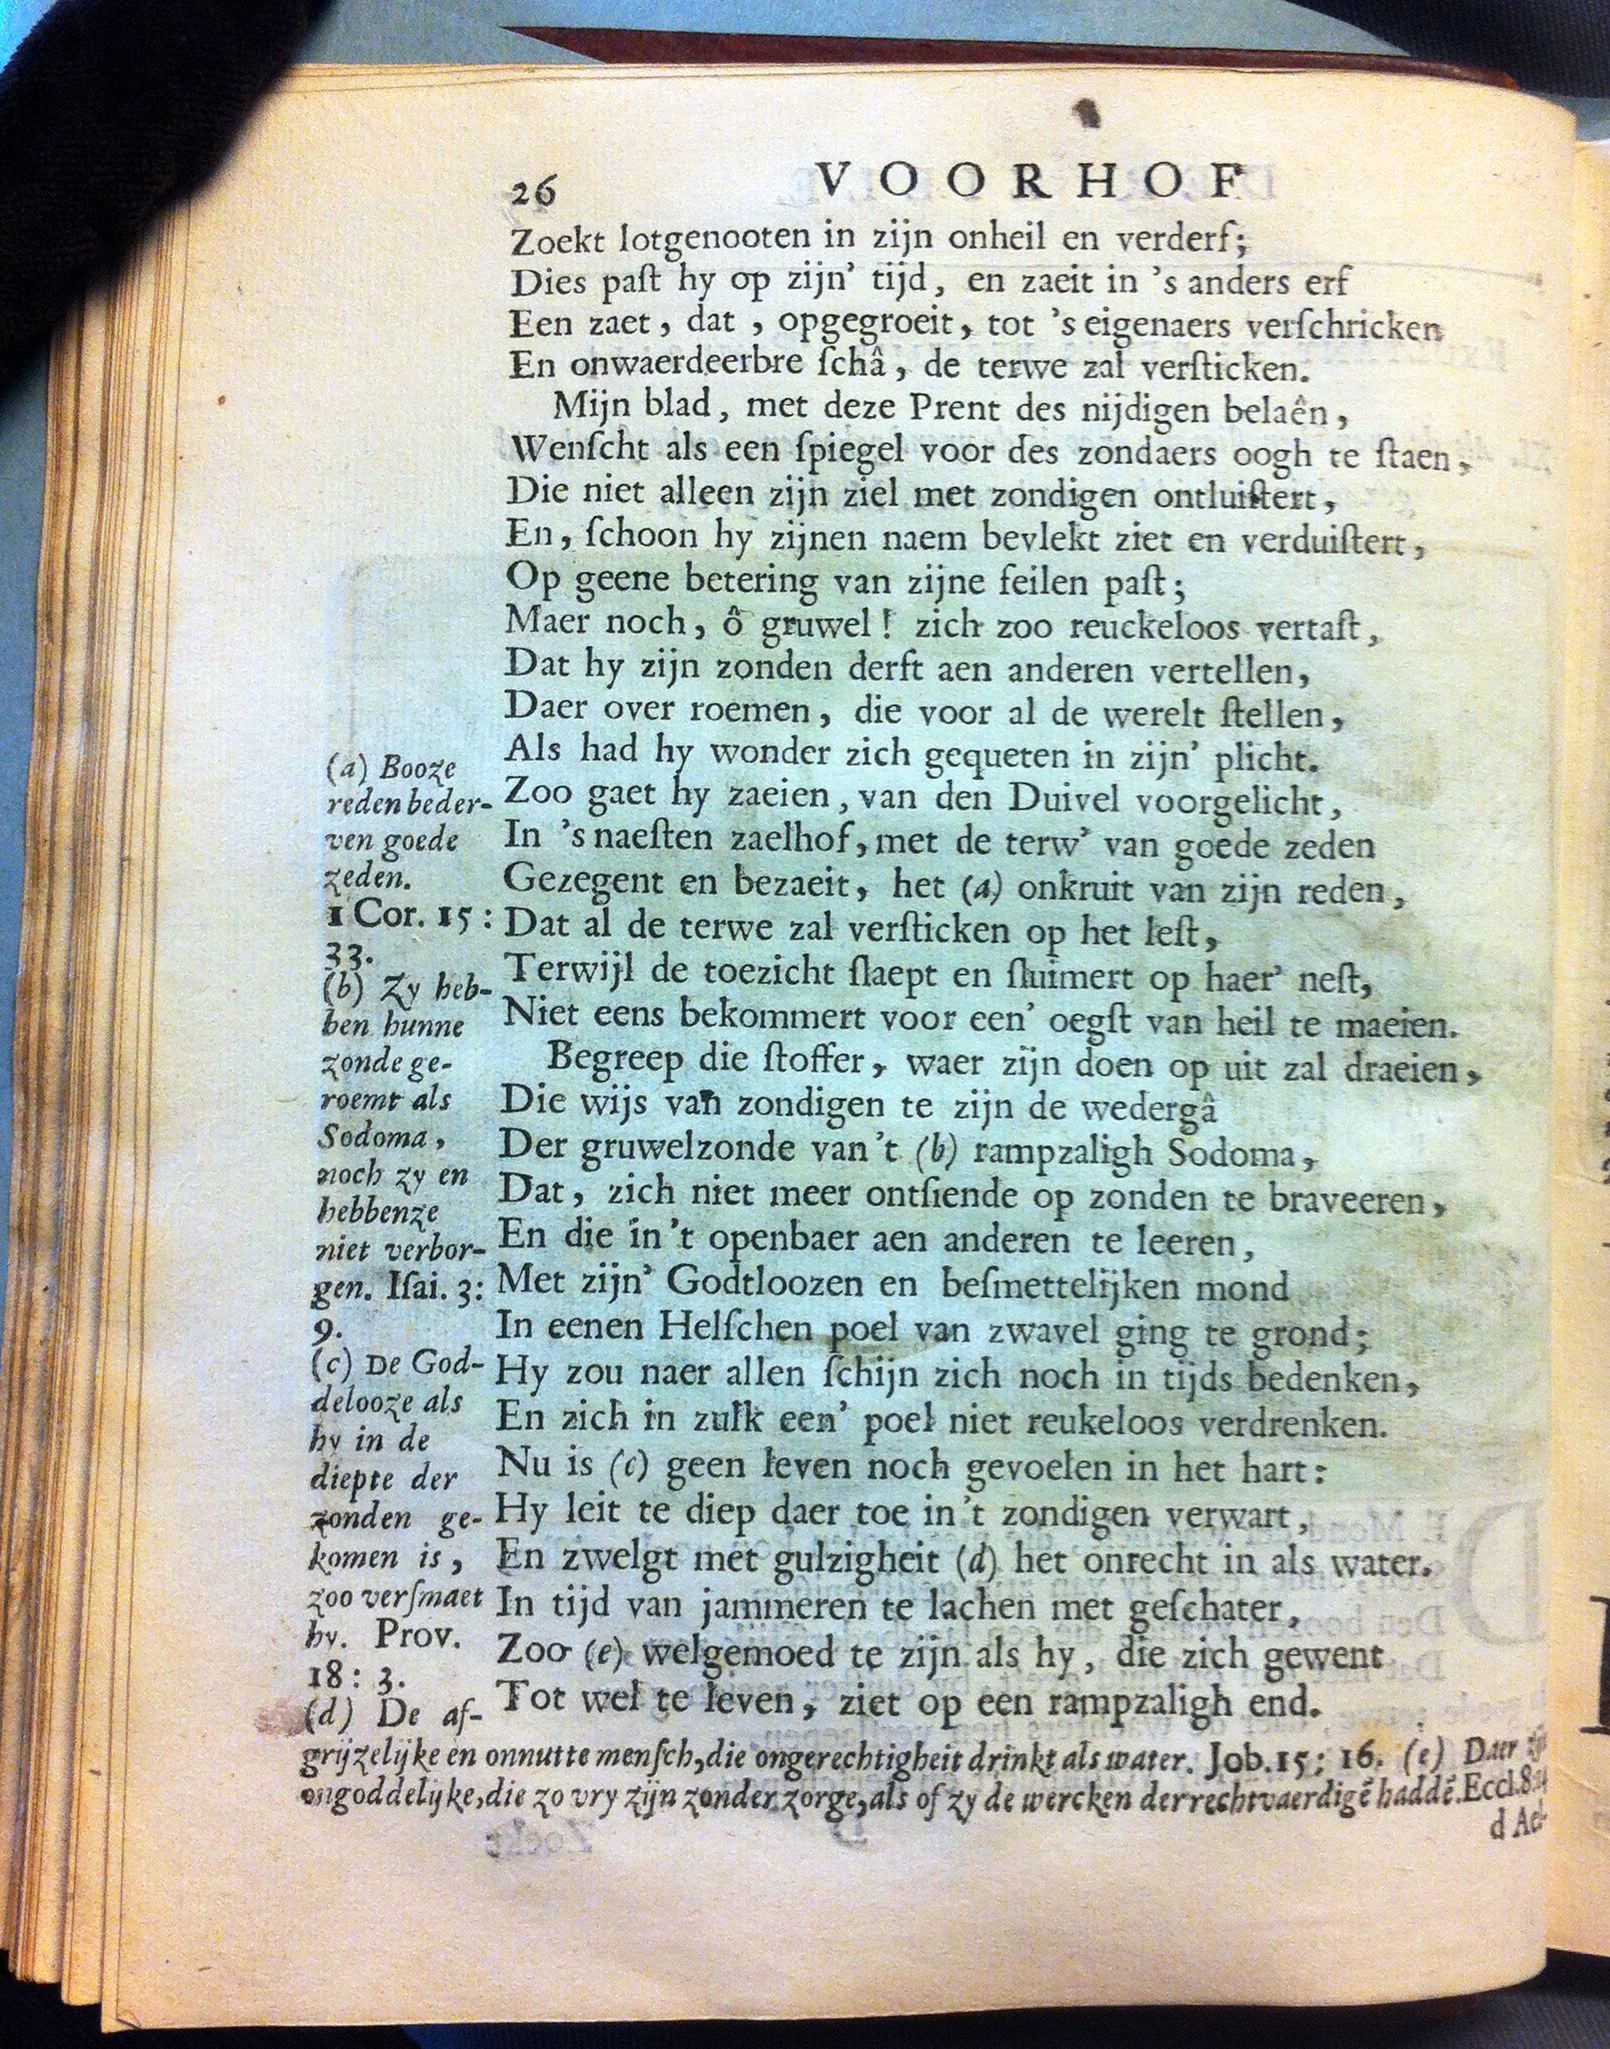 26 VOORHOF
Zoekt lotgenooten in zijn onheil en verderf;
Dies paſt hy op zijn' tijd, en zaeit in 's anders erf
Een zaet, dat, opgegroeit, tot 's eigenaers verſchricken
En onwaerdeerbre ſchâ, de terwe zal verſticken.
Mijn blad, met deze Prent des nijdigen belaên,
Wenſcht als een ſpiegel voor des zondaers oogh te ſtaen,
Die niet alleen zijn ziel met zondigen ontluiſtert,
En, ſchoon hy zijnen naem bevlekt ziet en verduiſtert,
Op geene betering van zijne feilen paſt;
Maer noch, ô gruwel! zich zoo reuckeloos vertaſt,
Dat hy zijn zonden derft aen anderen vertellen,
Daer over roemen, die voor al de werelt ſtellen,
Als had hy wonder zich gequeten in zijn' plicht.
Zoo gaet hy zaeien, van den Duivel voorgelicht,
In 's naeſten zaelhof, met de terw' van goede zeden
Gezegent en bezaeit, het (a) onkruit van zijn reden,
Dat al de terwe zal verſticken op het leſt,
Terwijl de toezicht ſlaept en ſluimert op haer' neſt,
Niet eens bekommert voor een' oegſt van heil te maeien.
Begreep die ſtoffer, waer zijn doen op uit zal draeien,
Die wijs van zondigen te zijn de wedergâ
Der gruwelzonde van 't (b) rampzaligh Sodoma,
Dat, zich niet meer ontſiende op zonden te braveeren,
En die in 't openbaer aen anderen te leeren,
Met zijn' Godtloozen en beſmettelijken mond
In eenen Helſchen poel van zwavel ging te grond;
Hy zou naer allen ſchijn zich noch in tijds bedenken,
En zich in zulk een' poel niet reukeloos verdrenken.
Nu is (c) geen leven noch gevoelen in het hart:
Hy leit te diep daer toe in 't zondigen verwart,
En zwelgt met gulzigheit (d) het onrecht in als water.
In tijd van jammeren te lachen met geſchater,
Zoo (e) welgemoed te zijn als hy, die zich gewent
Tot wel te leven, ziet op een rampzaligh end.
(a) Booze
reden beder-
ven goede
zeden.
1 Cor. 15:
33.
(b) Zy heb-
ben hunne
zonde ge-
roemt als
Sodoma,
noch zy en
hebbenze
niet verbor-
gen. Iſai. 3:
9.
(c) De God-
delooze als
hy in de
diepte der
zonden ge-
komen is,
zoo verſmaet
hy. Prov.
18: 3.
(d) De af-
grijzelijke en onnutte menſch, die ongerechtigheit drinkt als water. Job. 15: 16. (e) Daer zijn
ongoddelijke, die zo vry zijn zonder zorge, als of zy de wercken der rechtvaerdigē haddē. Eccl. 8:14
d Ael-